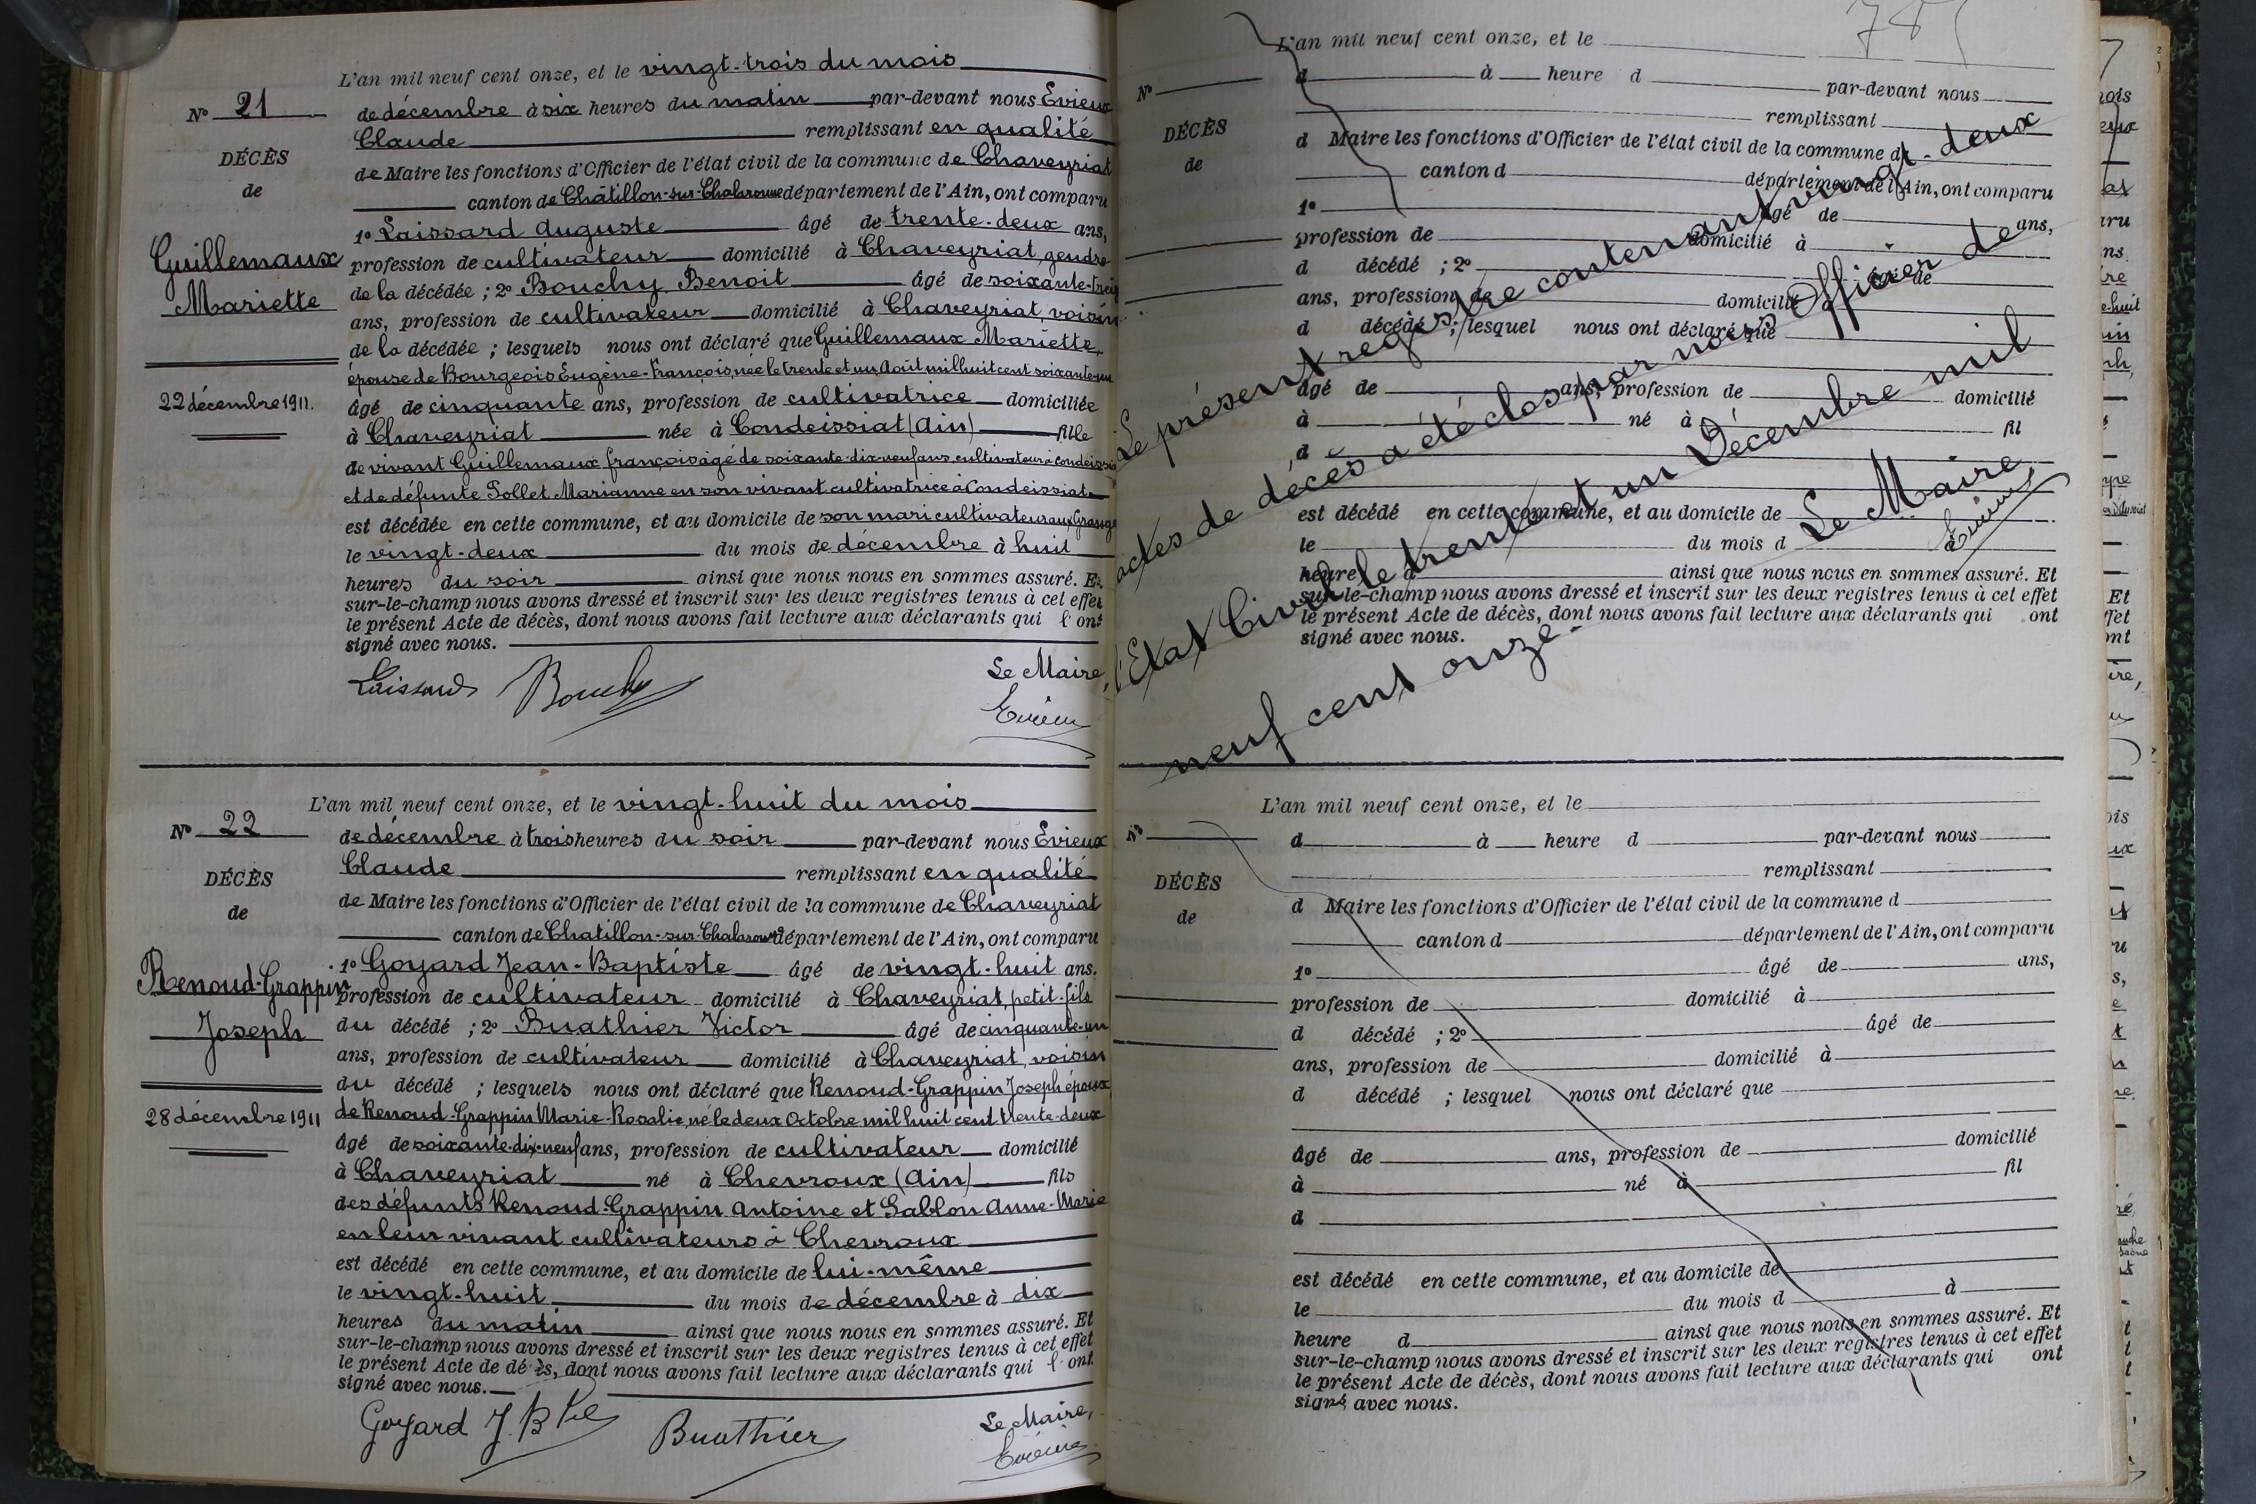 L'an mil neuf cent onze, et le vingt-trois du mois
N° 21
de décembre à six heures du matin par-devant nous Evieux
Claude remplissant en qualité
DÉCÈS
de Maire les fonctions d'Officier de l'état civil de la commune de Chaveyriat
de
canton de Châtillon-sur-Chalaronne département de l'Ain, ont comparu
1° Laissard Auguste âgé de trente-deux ans,
Guillemaux
Mariette
profession de cultivateur domicilié à Chaveyriat, gendre
de la décédée ; 2° Bouchy Benoit âgé de soixante-treize
ans, profession de cultivateur domicilié à Chaveyriat, voisin
de la décédée ; lesquels nous ont déclaré que Guillemaux Mariette,
épouse de Bourgeois Eugène-François, née le trente et un Août mil huit cent soixante-un
22 décembre 1911.
âgé de cinquante ans, profession de cultivatrice domiciliée
à Chaveyriat née à Condeissiat (Ain) fille
de vivant Guillemaux François âgé de soixante-dix-neuf ans, cultivateur à Condeissiat
et de défunte Pollet Marianne en son vivant cultivatrice à Condeissiat
est décédée en cette commune, et au domicile de son mari cultivateur aux Granges
le vingt-deux du mois de décembre à huit
heures du soir ainsi que nous nous en sommes assuré. Et
sur-le-champ nous avons dressé et inscrit sur les deux registres tenus à cet effet
le présent Acte de décès, dont nous avons fait lecture aux déclarants qui l'ont
signé avec nous.
Laissard Bouchy Le Maire,
Evieux
L'an mil neuf cent onze, et le vingt-huit du mois
N° 22
de décembre à trois heures du soir par-devant nous Evieux
Claude remplissant en qualité
DÉCÈS
de Maire les fonctions d'Officier de l'état civil de la commune de Chaveyriat
de
canton de Chatillon-sur-Chalaronne département de l'Ain, ont comparu
1° Goyard Jean-Baptiste âgé de vingt-huit ans.
Renoud-Grappin
Joseph
profession de cultivateur domicilié à Chaveyriat, petit-fils
du décédé ; 2° Buathier Victor âgé de cinquante-un
ans, profession de cultivateur domicilié à Chaveyriat, voisin
du décédé ; lesquels nous ont déclaré que Renoud-Grappin Joseph époux
28 décembre 1911
de Renoud-Grappin Marie-Rosalie, né le deux Octobre mil huit cent trente-deux
âgé de soixante-dix-neuf ans, profession de cultivateur domicilié
à Chaveyriat né à Chevroux (Ain) fils
des défunts Renoud-Grappin Antoine et Sablon Anne-Marie
en leur vivant cultivateurs à Chevroux
est décédé en cette commune, et au domicile de lui-même
le vingt-huit du mois de décembre à dix
heures du matin ainsi que nous nous en sommes assuré. Et
sur-le-champ nous avons dressé et inscrit sur les deux registres tenus à cet effet
le présent Acte de dé ès, dont nous avons fait lecture aux déclarants qui l'ont
signé avec nous.
Goyard J. Bte Buathier Le Maire,
Evieux
L'an mil neuf cent onze, et le
N°
d à heure d par-devant nous
remplissant
DÉCÈS
d Maire les fonctions d'Officier de l'état civil de la commune d
de
canton d département de l'Ain, ont comparu
1° âgé de ans,
profession de domicilié à
d décédé ; 2° âgé de
ans, profession de domicilié à
d décédé ; lesquel nous ont déclaré que
âgé de ans, profession de domicilié
à né à fil
d
est décédé en cette commune, et au domicile de
le du mois d à
heure d ainsi que nous nous en sommes assuré. Et
sur-le-champ nous avons dressé et inscrit sur les deux registres tenus à cet effet
le présent Acte de décès, dont nous avons fait lecture aux déclarants qui ont
signé avec nous.
Le présent registre contenant vingt-deux
actes de décès a été clos par nous Officier de
l'Etat Civil le trente et un Décembre mil
neuf cent onze.
Le Maire,
Evieux
L'an mil neuf cent onze, et le
N°
d à heure d par-devant nous
remplissant
DÉCÈS
d Maire les fonctions d'Officier de l'état civil de la commune d
de
canton d département de l'Ain, ont comparu
1° âgé de ans,
profession de domicilié à
d décédé ; 2° âgé de
ans, profession de domicilié à
d décédé ; lesquel nous ont déclaré que
âgé de ans, profession de domicilié
à né à fil
d
est décédé en cette commune, et au domicile de
le du mois d à
heure d ainsi que nous nous en sommes assuré. Et
sur-le-champ nous avons dressé et inscrit sur les deux registres tenus à cet effet
le présent Acte de décès, dont nous avons fait lecture aux déclarants qui ont
signé avec nous.